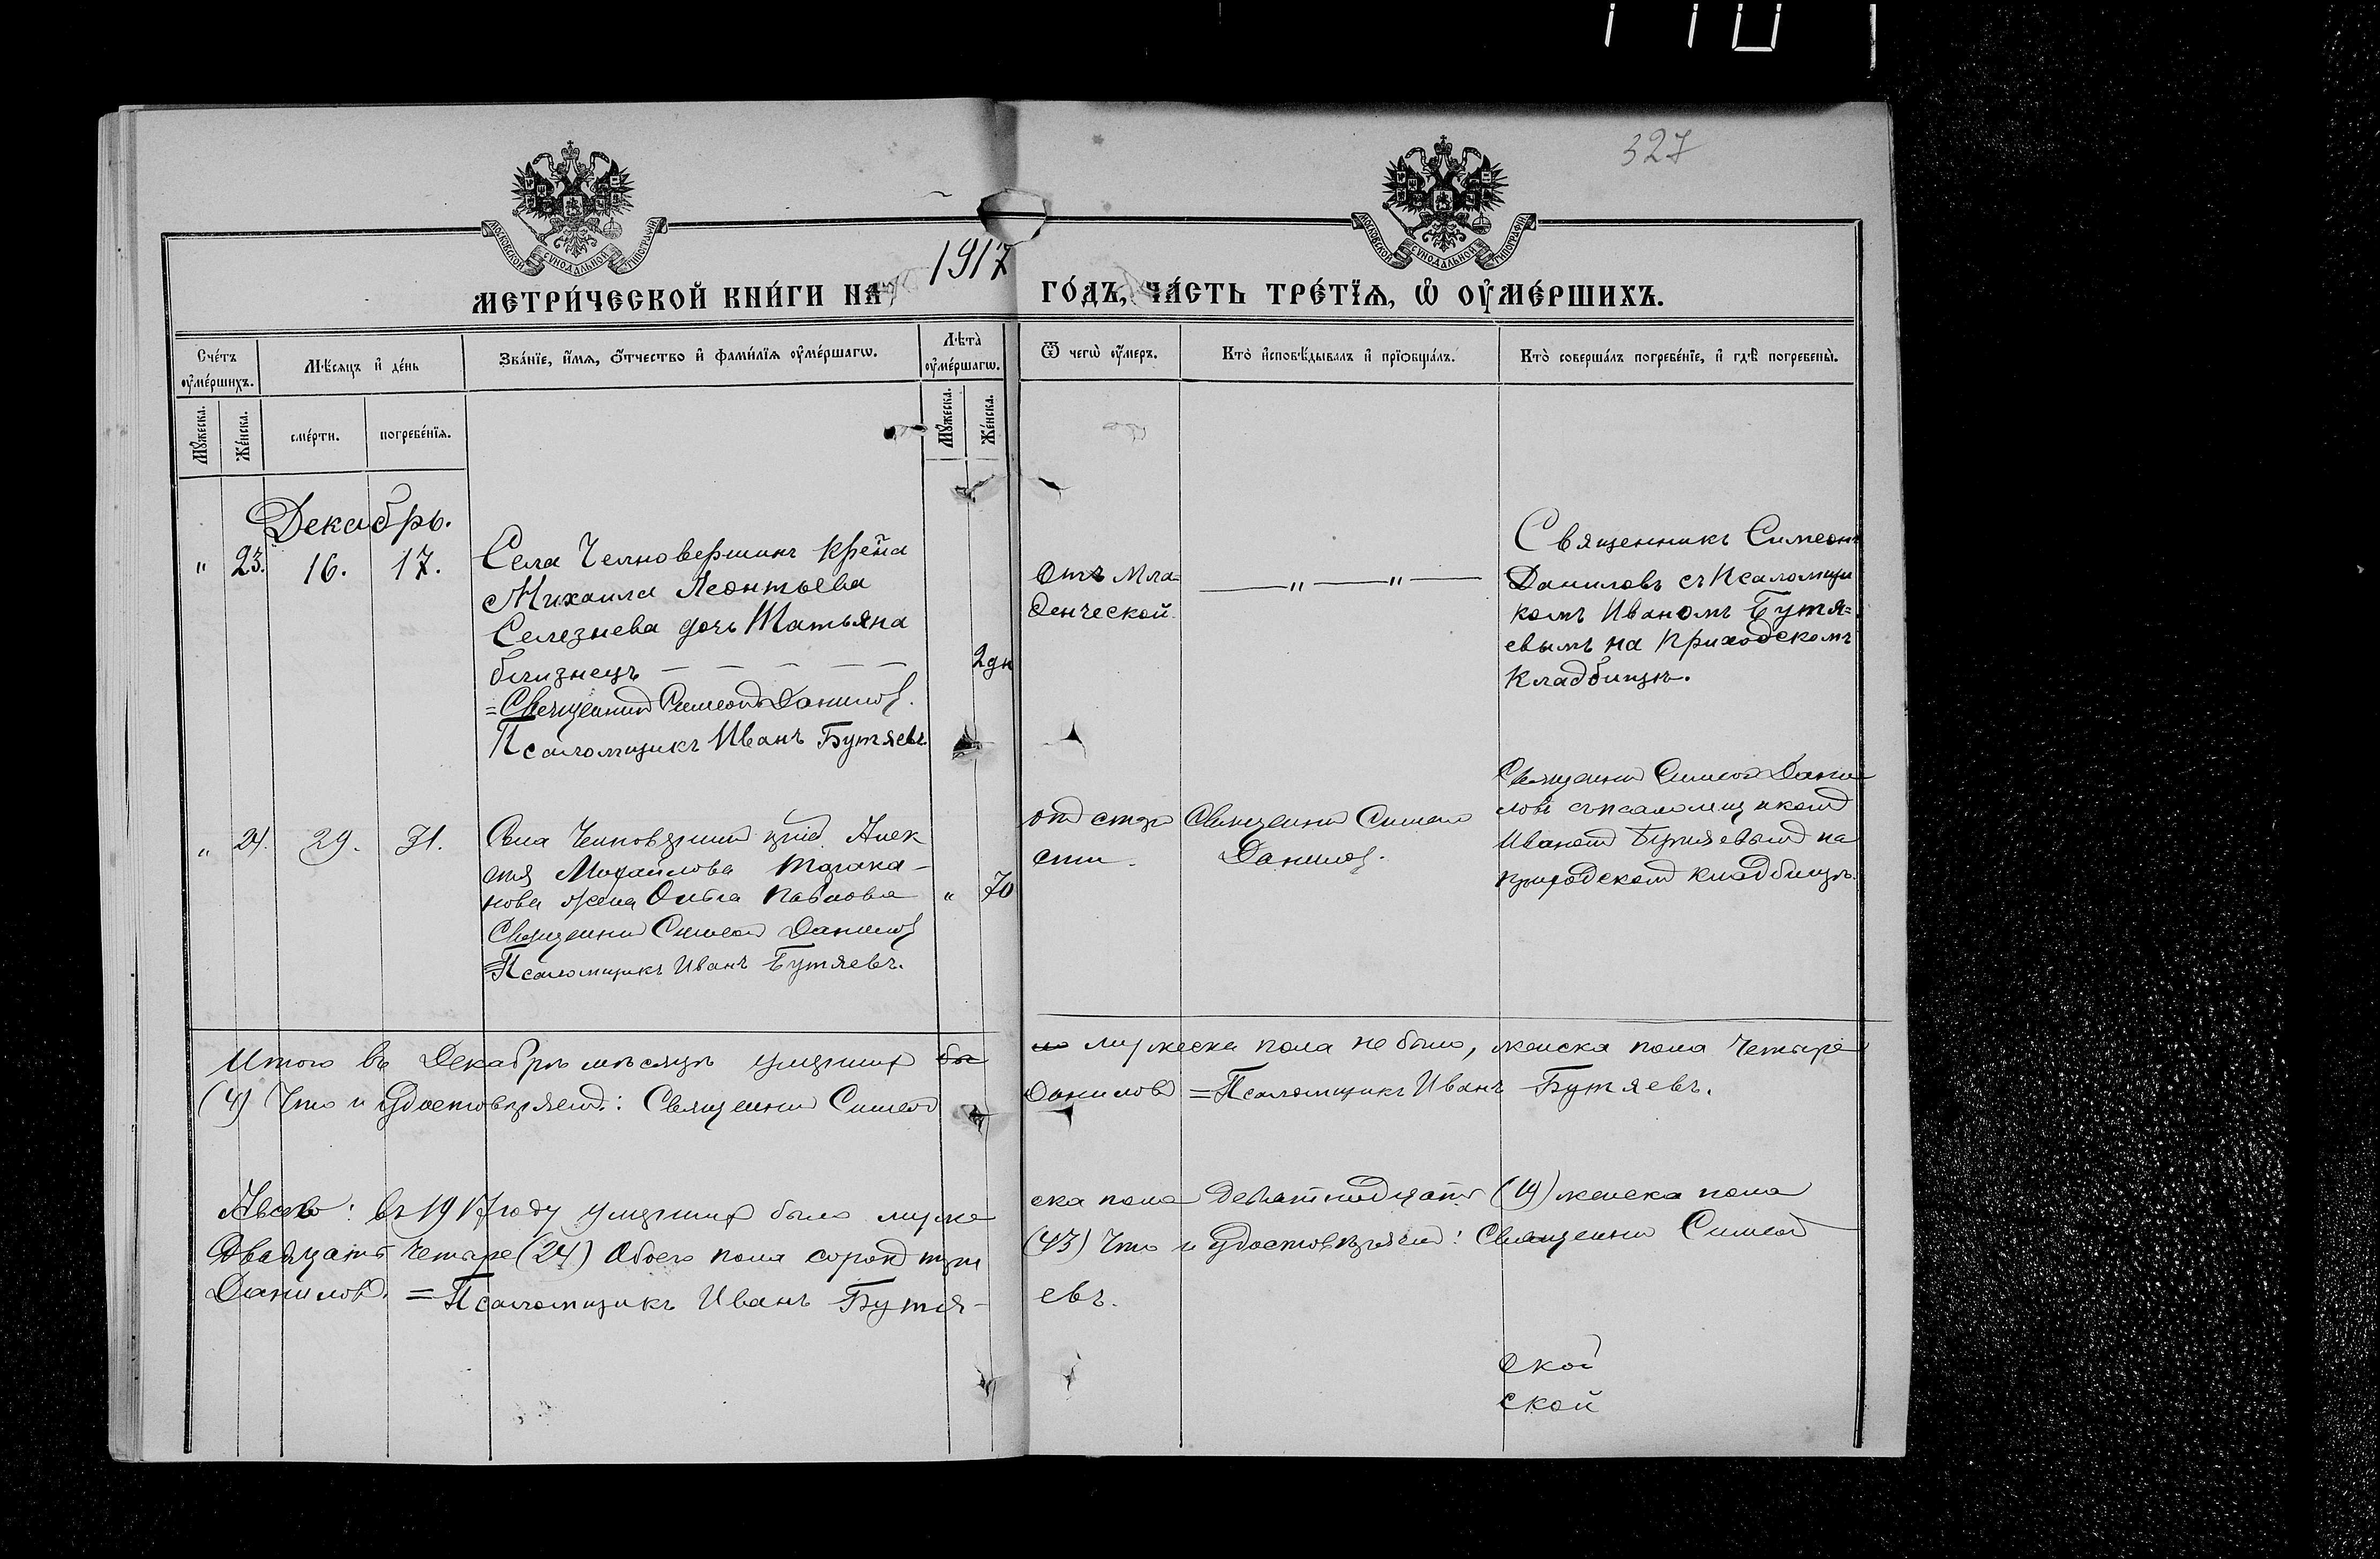 327
МОСКОВСКОЙ СѴНОДАЛЬНОЙ ТИПОГРАФІИ
МОСКОВСКОЙ СѴНОДАЛЬНОЙ ТИПОГРАФІИ
МЕТРИ́ЧЕСКОЙ КНИ́ГИ НА 1917 ГО́ДЪ, ЧА́СТЬ ТРЕ́ТЇѦ, Ѡ҆ ОУ҆МЕ́РШИХЪ.
Сче́тъ оу҆ме́ршихъ.
Мꙋ́жеска.
Же́нска.
Мѣ́сѧцъ и҆ де́нь
сме́рти.
погребе́нїѧ.
Зва́нїе, и҆́мѧ, ѻ҆́тчество и҆ фами́лїѧ оу҆ме́ршагѡ.
Лѣ́та оу҆ме́ршагѡ.
Мꙋ́жеска.
Же́нска.
Ѿ чегѡ̀ оу҆́меръ.
Кто̀ и҆сповѣ́дывалъ и҆ прїѡбща́лъ.
Кто̀ соверша́лъ погребе́нїе, и҆ гдѣ̀ погребены̀.
Декабрь.
" 23. 16. 17.
Села Челновершинъ крена
Михаила Леонтьева
Селезнева дочь Татьяна
близнецъ — — — — —
2 дн
=Священникъ Симеонъ Даниловъ.
Псаломщикъ Иванъ Бутяевъ
Отъ мла-
денческой.
— " — " —
Священникъ Симеонъ
Даниловъ съ Псаломщи
комъ Иваномъ Бутя=
евымъ на приходскомъ
кладбищѣ.
" 24. 29. 31.
Села Челновершинъ крест. Алек
Михайлова Таракa-
нова жена Ольга Павлова
" 70
Священникъ Симеонъ Даниловъ
=Псаломщикъ Иванъ Бутяевъ.
отъ старо
сти.
Священникъ Симеонъ
Даниловъ.
Священникъ Симеонъ Дани
ловъ съ псаломщикомъ
Иваномъ Бутяевымъ на
приходскомъ кладбищѣ.
Итого въ Декабрѣ мѣсяцѣ умершихъ бы
ло мужеска пола не было, женска пола четыре
(4) Что и удостовѣряемъ: Священникъ Симеонъ
Даниловъ =Псаломщикъ Иванъ Бутяевъ.
въ 1917 году умершихъ было муже
ска пола девятнадцать (19) женска пола
двадцать четыре (24) обоего пола сорокъ три
(43) Что и удостовѣряемъ: Священникъ Симеонъ
Даниловъ. =Псаломщикъ Иванъ Бутя-
евъ.
ской
ской